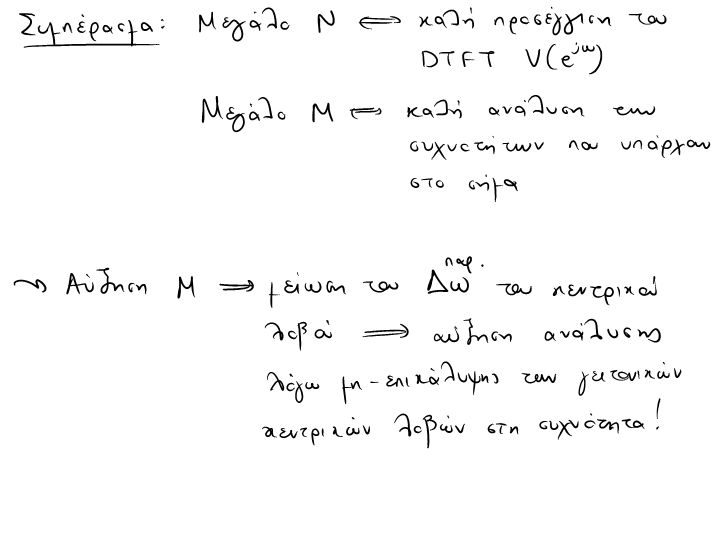 Συμπέρασμα: Μεγάλο N ⟺ καλή προσέγγιση του
DTFT V(e^{jω})
Μεγάλο M ⟺ καλή ανάλυση των
συχνοτήτων που υπάρχουν
στο σήμα
⤳ Αύξηση M ⟹ μείωση του Δω^{παρ.} του κεντρικού
λοβού ⟹ αύξηση ανάλυσης
λόγω μη-επικάλυψης των γειτονικών
κεντρικών λοβών στη συχνότητα!